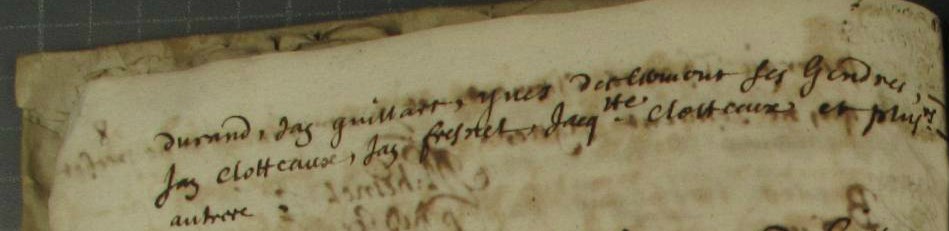 durand, Jaq guillart, yves declemont ses Gendres,
Jaq Clotteaux, Jaq fresnel, Jacq.tte Clotteaux et plus.rs
autres